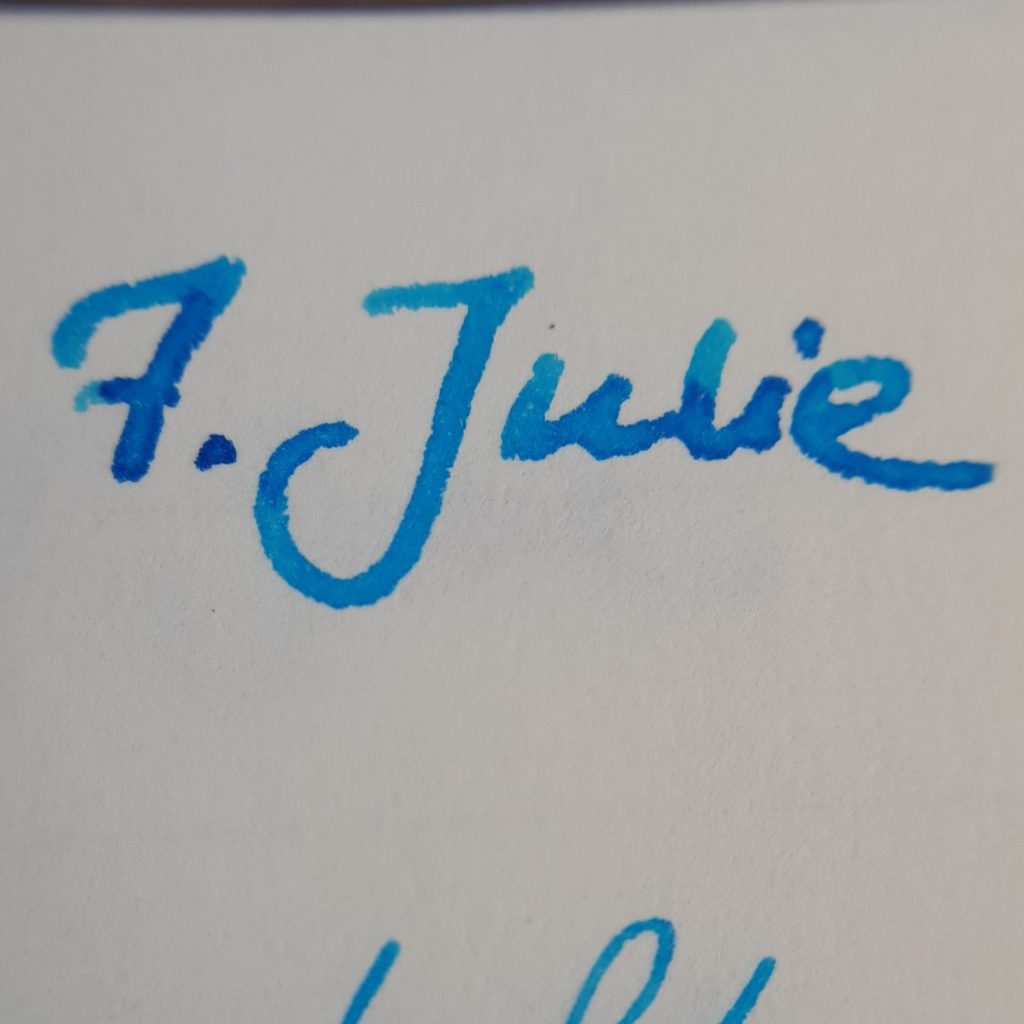 7. Julie